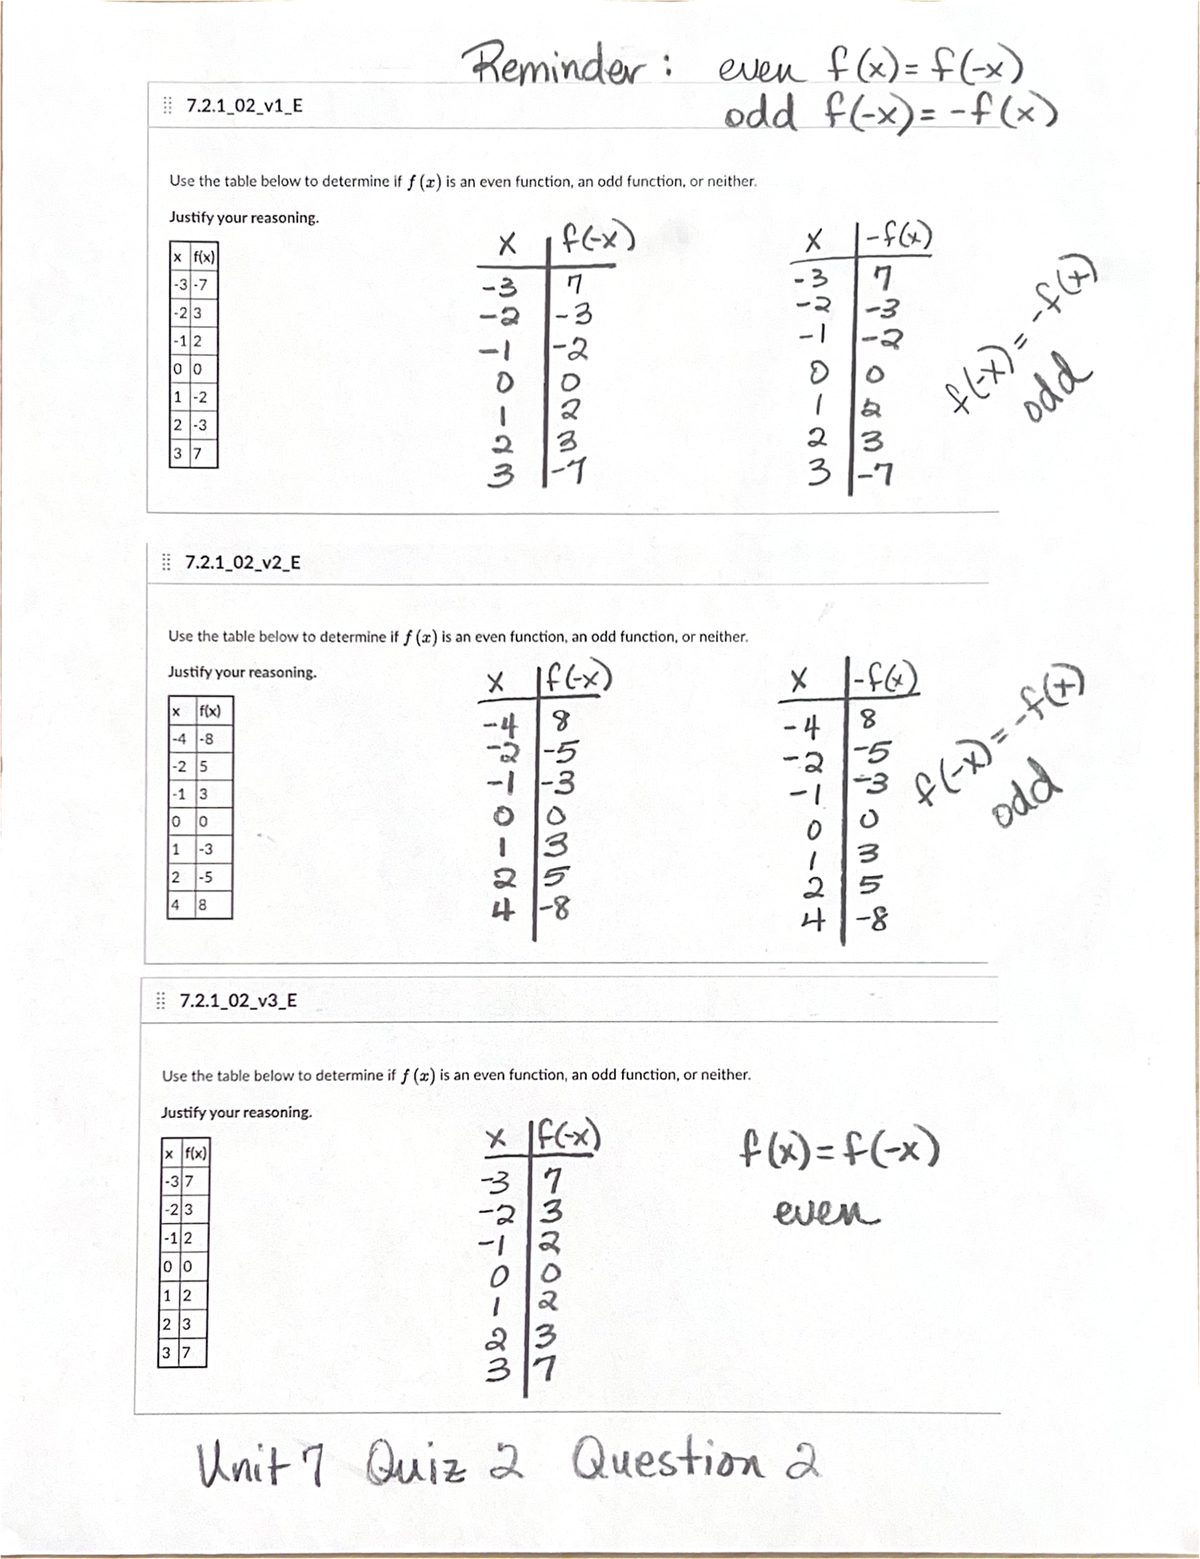 Reminder: even f(x)=f(-x)
odd f(-x)=-f(x)
7.2.1_02_v1_E
Use the table below to determine if f (x) is an even function, an odd function, or neither.
Justify your reasoning.
x f(x)
-3 -7
-2 3
-1 2
0 0
1 -2
2 -3
3 7
x f(-x)
-3 7
-2 -3
-1 -2
0 0
1 2
2 3
3 -7
x -f(x)
-3 7
-2 -3
-1 -2
0 0
1 2
2 3
3 -7
f(-x)=-f(x)
odd
7.2.1_02_v2_E
Use the table below to determine if f (x) is an even function, an odd function, or neither.
Justify your reasoning.
x f(x)
-4 -8
-2 5
-1 3
0 0
1 -3
2 -5
4 8
x f(-x)
-4 8
-2 -5
-1 -3
0 0
1 3
2 5
4 -8
x -f(x)
-4 8
-2 -5
-1 -3
0 0
1 3
2 5
4 -8
f(-x)=-f(x)
odd
7.2.1_02_v3_E
Use the table below to determine if f (x) is an even function, an odd function, or neither.
Justify your reasoning.
x f(x)
-3 7
-2 3
-1 2
0 0
1 2
2 3
3 7
x f(-x)
-3 7
-2 3
-1 2
0 0
1 2
2 3
3 7
f(x)=f(-x)
even
Unit 7 Quiz 2 Question 2